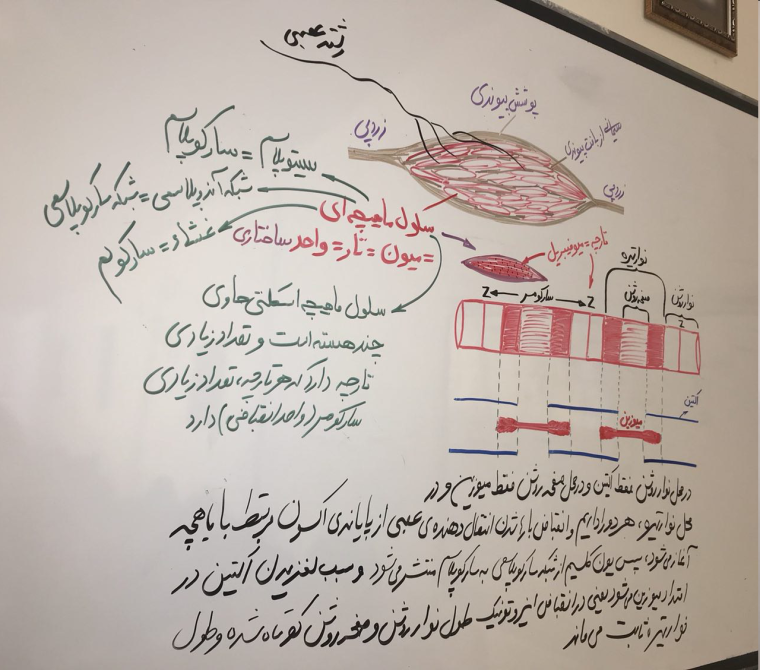 رشته عصبی
پوشش پیوندی
میانه از بافت پیوندی
زردپی
زردپی
سیتوپلاسم = سارکوپلاسم
شبکه آندوپلاسمی = شبکه سارکوپلاسمی
غشاء = سارکولم
سلول ماهیچه ای
= میون = تار = واحد ساختاری
تارچه = میوفیبریل
نوار تیره
صفحه روشن
نوار روشن
Z ← سارکومر → Z
Z
سلول ماهیچه اسکلتی حاوی
چند هسته است و تعداد زیادی
تارچه دارد که هر تارچه، تعداد زیادی
سارکومر (واحد انقباضی) دارد
اکتین
میوزین
در محل نوار روشن فقط اکتین و در محل صفحه روشن فقط میوزین و در
محل نوار تیره، هر دو را داریم و انقباض با آزاد شدن انتقال دهنده ی عصبی از پایانه ی آکسون مرتبط با ماهیچه
آغاز می شود، سپس یون کلسیم از شبکه سارکوپلاسمی به سارکوپلاسم منتشر می شود و سبب لغزیدن اکتین در
امتداد میوزین می شود یعنی در انقباض ایزوتونیک طول نوار روشن و صفحه روشن کوتاه شده و طول
نوار تیره ثابت می ماند